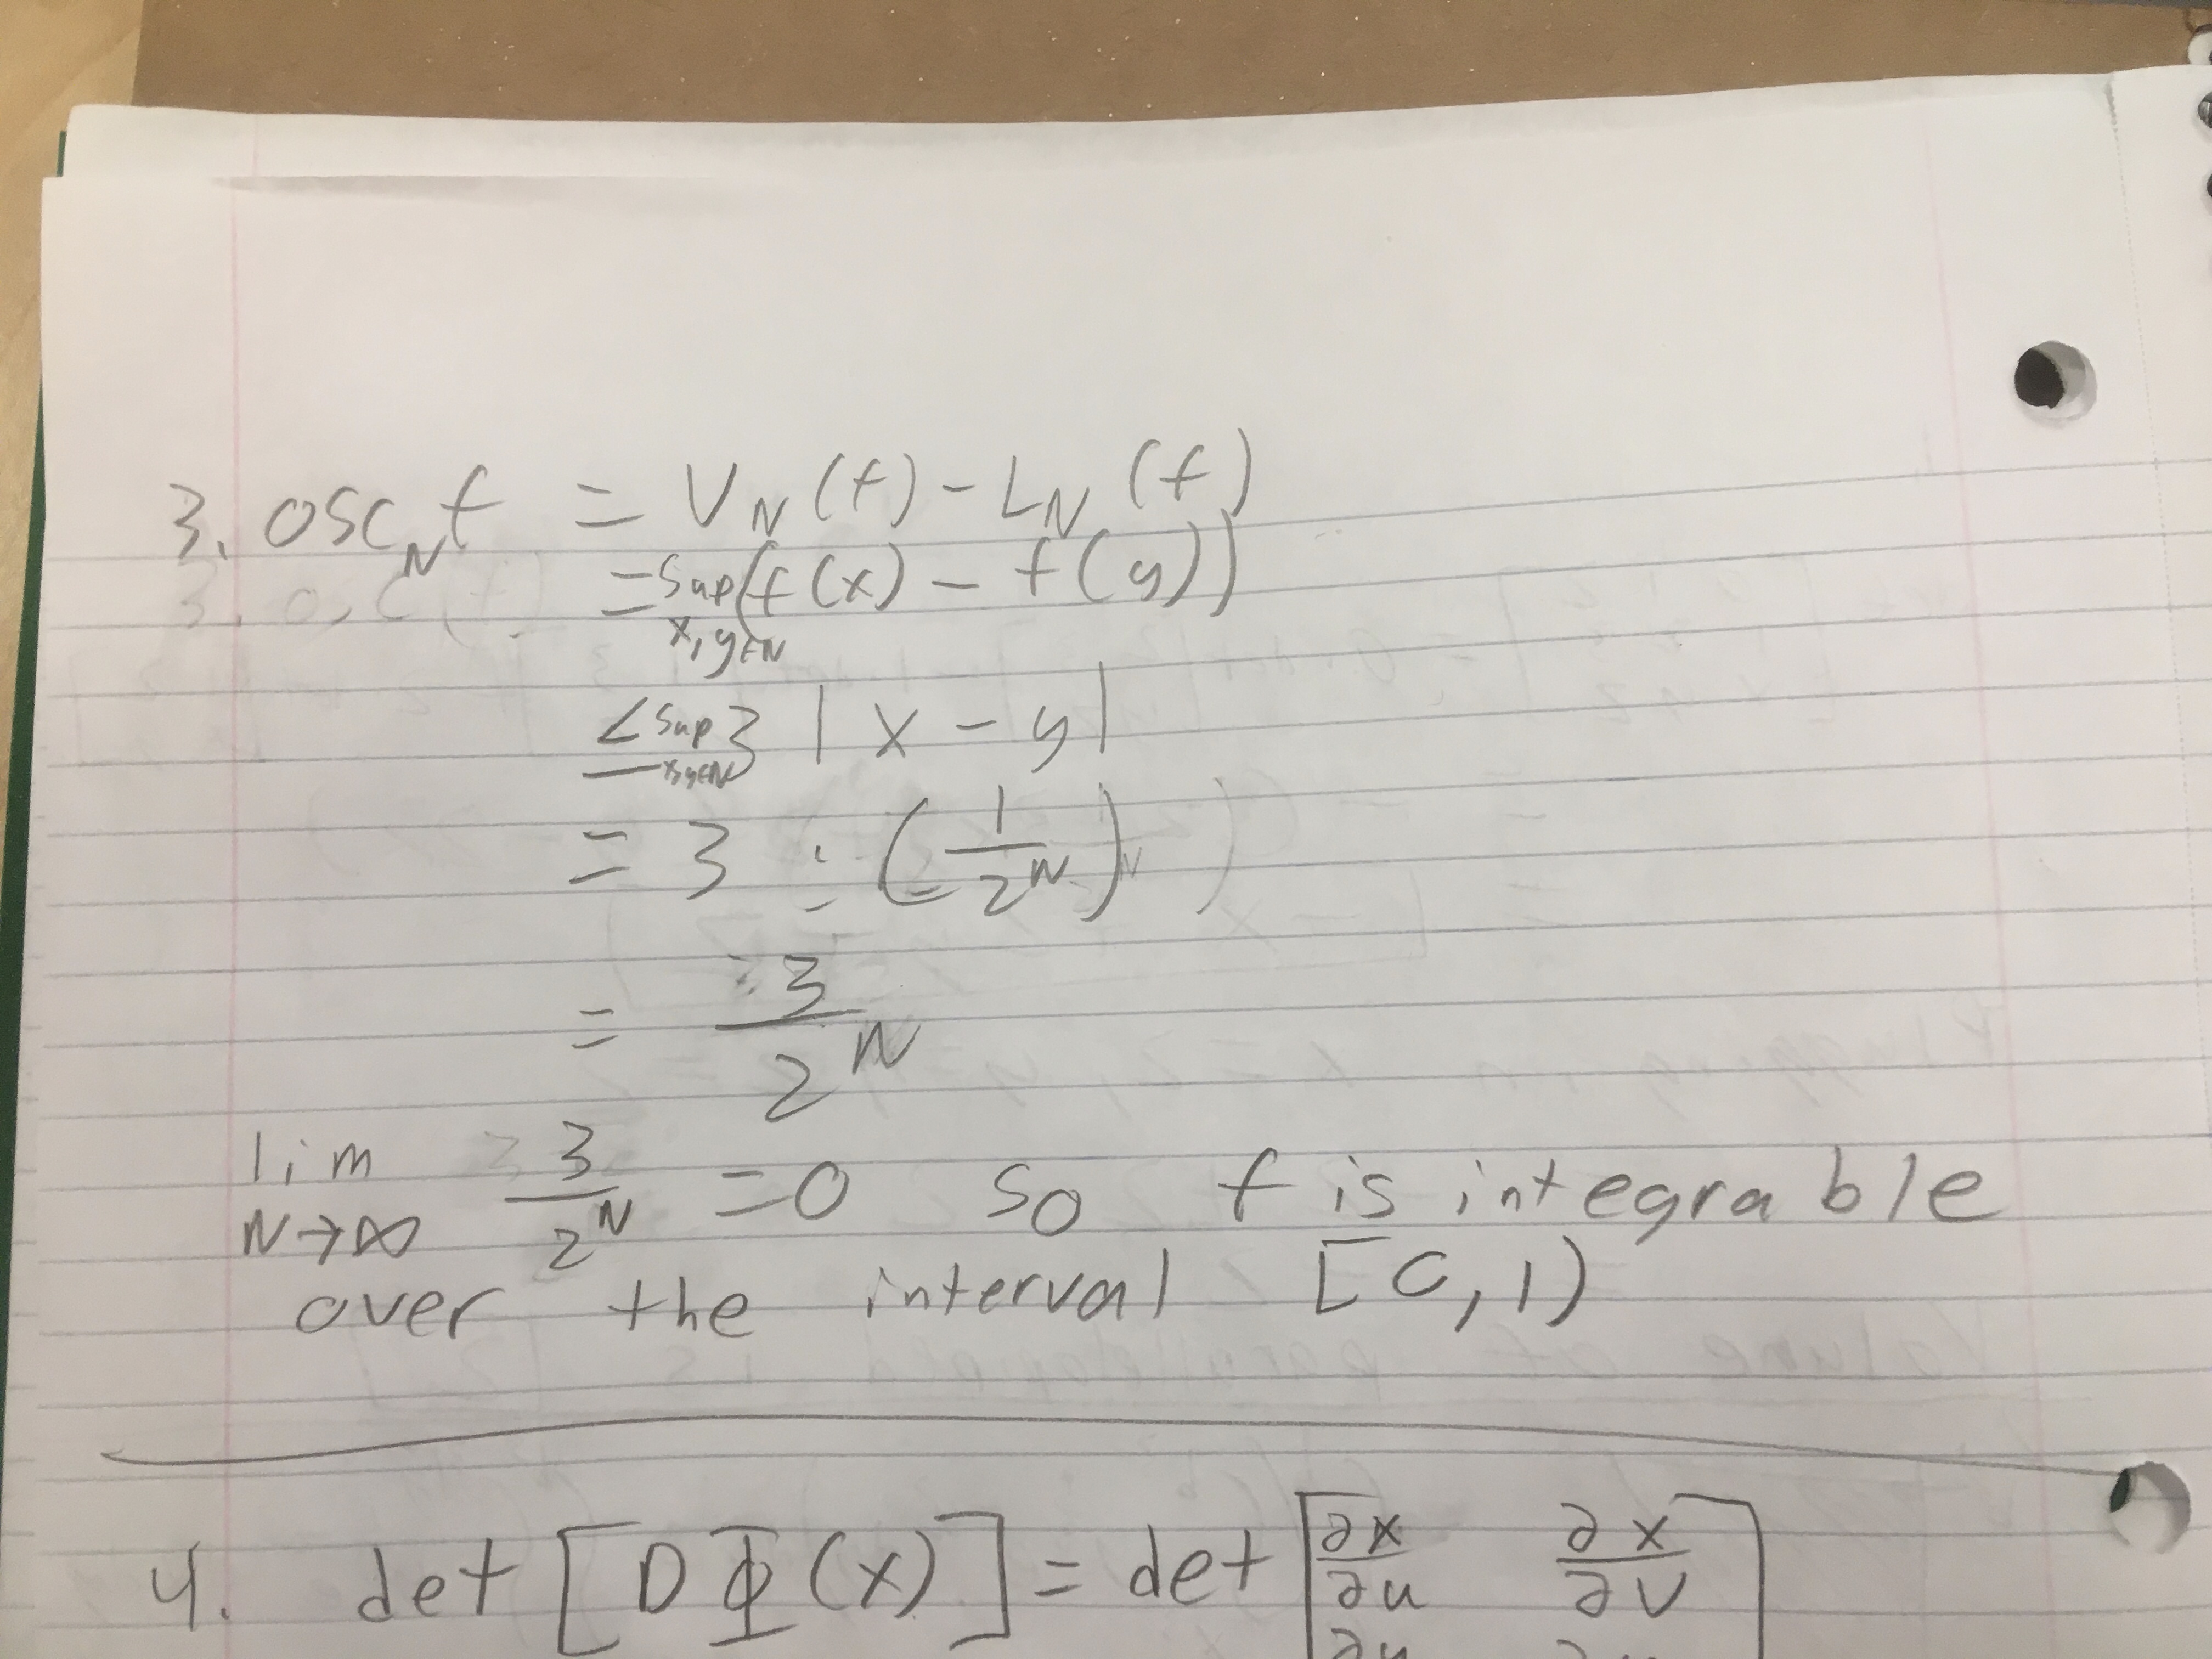 3. osc_N f = U_N (f) - L_N (f)
= sup_{x,y∈N} (f(x) - f(y))
≤ sup_{x,y∈N} 3 |x - y|
= 3 · (1/2^N)
= 3/2^N
lim_{N→∞} 3/2^N = 0 so f is integrable
over the interval [0,1)
4. det [DΦ(x)] = det [∂x/∂u ∂x/∂v]